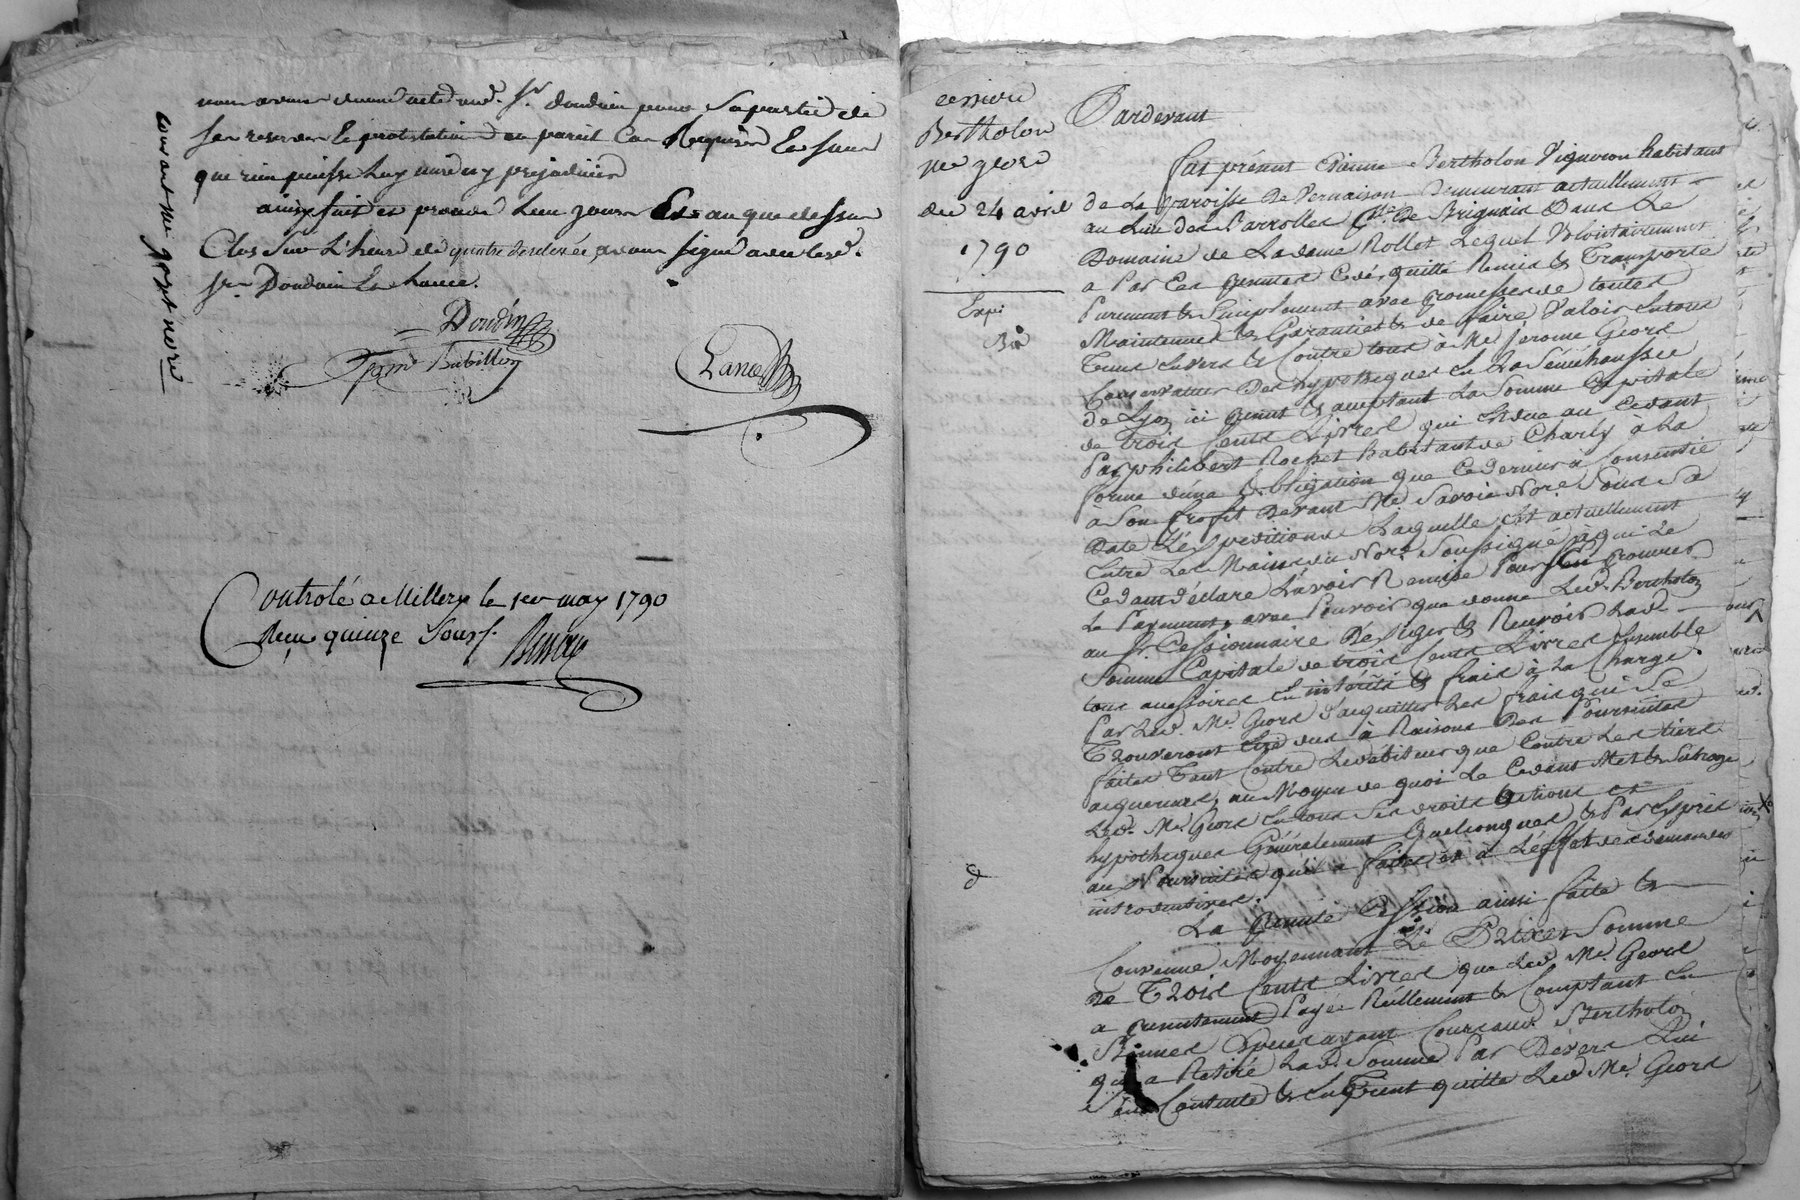 nous avons donné acte aud. Sr. Doudin pour sa partie de
ses reserves & protestations au pareil cas Requises En sorte
que rien puisse luy nuire ny prejudicier
ainsy fait et procedé Lieu jour Et an que dessus
Clos Sur L'heure de quatre de relevée, avons signé avec led.
Sr. Doudin Et Lance.
Doudin
Lance
Controlé a Millery le 1er may 1790
Reçu quinze Sous.
cession
Bertholon
Me geors
du 24 avril
1790
Expé
Pardevant
fut présent Bertholon Vigneron habitant
de La paroisse De Vernaison Demeurant actuellement
au Lieu des Barrolles De Brignais Dans Le
Domaine de La dame Rollet Lequel Volontairement
a Par Ces presentes Cédé, quitté Remis & Transporté
Purement & Simplement avec promesses de toutes
Maintenues & Garanties & de faire Valoir Envers
& Contre tous à Me Jerome Geors
Conservateur Des hypotheques En La Sénéchaussée
de Lyon ici present & acceptant La Somme Capitale
de trois Cents Livres qui Est due au Cedant
Par philibert Rochet habitant de Charly à la
forme d'une Obligation que Ce dernier a Consentie
à Son profit Devant Me Savoie Nore. Sous Sa
Date L'éxpedition de Laquelle Est actuellement
Entre Les Mains du Nore. Soussigné à qui Le
Cedant déclare L'avoir Remise Pour En
Le Payement, avec Pouvoir que donne Led. Bertholon
au Sr. Cessionnaire D'éxiger & Recevoir Lad.
Somme Capitale de trois Cents Livres Ensemble
tous accessoires En intérêts & frais à La Charge
Par Led. Me. Geors d'acquitter Les frais qui Se
Trouveront Etre dus à Raisons Des Poursuites
faites Tant Contre Le débiteur que Contre Les tiers
acquereurs, au Moyen de quoi Le Cedant Met & Subroge
Led. Me. Geors En tous Ses droits Actions Et
hypotheques Généralement Quelconques & Par Exprès
au Poursuites qu'il a faites, et à L'éffet des demandes
introductives.
La presente Cession ainsi faite &
Convenue Moyennant Le Prix & Somme
De Trois Cents Livres que Led. Me. Geors
a presentement Payé Réellement & Comptant En
Bonnes Especes ayant Cours aud. Bertholon
qui a Retiré Lad. Somme Par Devers Lui
Contente & En Tient quitte Led. Me. Geors